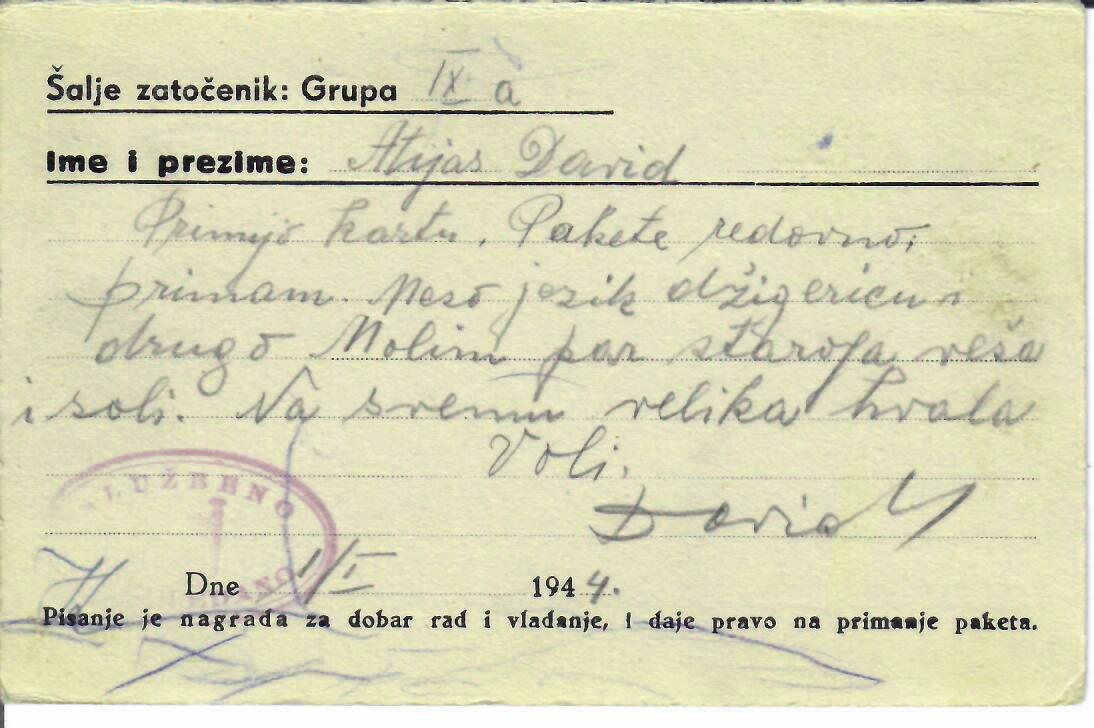 Šalje zatočenik: Grupa IX a
Ime i prezime: Atijas David
Primijo kartu. Pakete redovno
primam. Meso jezik džigericu i
drugo Molim par staroga veša
i soli. Na svemu velika hvala
Voli.
David
SLUŽBENO
Dne 1/I 1944.
Pisanje je nagrada za dobar rad i vladanje, i daje pravo na primanje paketa.